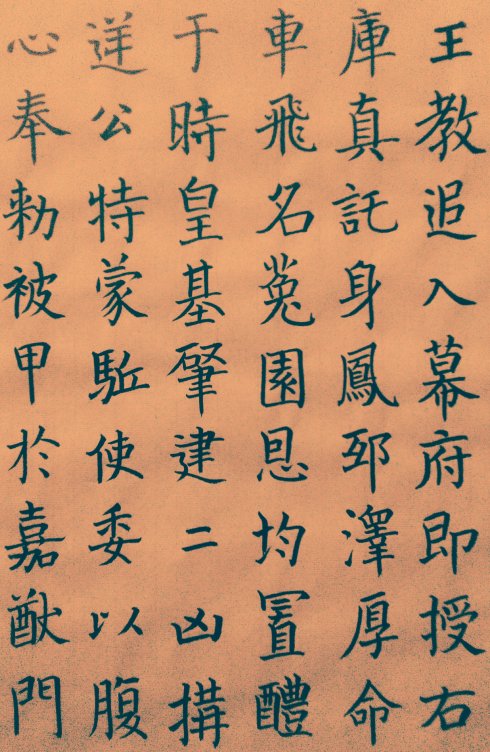 王教追入幕府即授右
庫真託身鳳邸澤厚命
車飛名菟園恩均置醴
于時皇基肇建二凶搆
逆公特蒙駈使委以腹
心奉勑被甲於嘉猷門